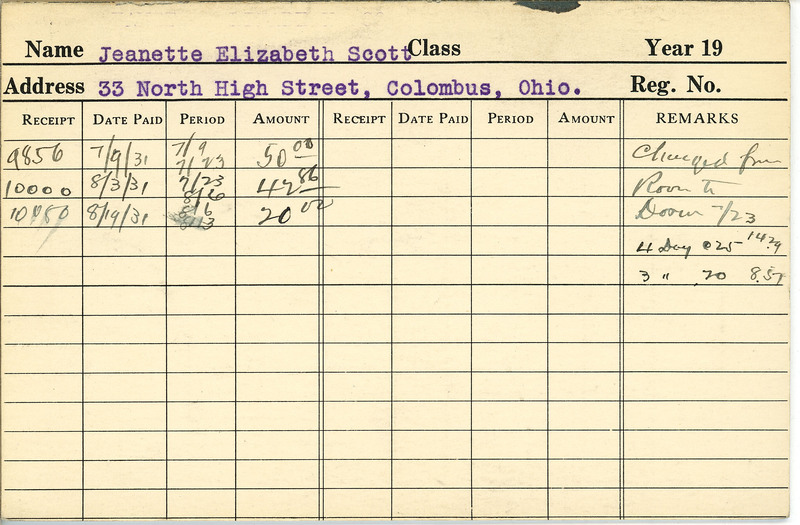 Name Jeanette Elizabeth Scott Class Year 19
Address 33 North High Street, Colombus, Ohio. Reg. No.
RECEIPT DATE PAID PERIOD AMOUNT RECEIPT DATE PAID PERIOD AMOUNT REMARKS
9856 7/9/31 7/9 7/23 50 00 Changed from
10000 8/3/31 7/23 8/6 42 86 Room to
8/19/31 8/6 8/13 20 00 Dorm 7/23
4 Day @ 25 14.29
3 " 20 8.57